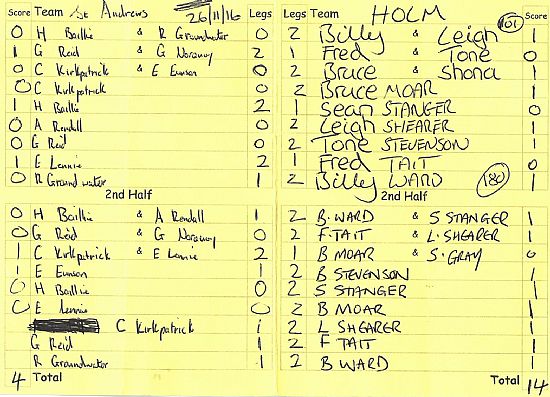 Score Team St Andrews 26/11/16 Legs Legs Team HOLM 101 Score
0 H Baillie & R Groundwater 0 2 Billy & Leigh 1
1 G Reid & G Norquoy 2 1 Fred & Tone 0
0 C Kirkpatrick & E Eunson 0 2 Bruce & Shona 1
0 C Kirkpatrick 0 2 Bruce MOAR 1
1 H Baillie 2 1 Sean STANGER 0
0 A Rendall 0 2 Leigh SHEARER 1
0 G Reid 0 2 Tone STEVENSON 1
1 E Lennie 2 1 Fred TAIT 0
0 R Groundwater 1 2 Billy WARD 180 1
2nd Half 2nd Half
0 H Baillie & A Rendall 1 2 B. WARD & S STANGER 1
0 G Reid & G Norquoy 0 2 F. TAIT & L. SHEARER 1
1 C Kirkpatrick & E Lennie 2 1 B MOAR & S. GRAY 0
1 E Eunson 1 2 B STEVENSON 1
0 H Baillie 0 2 S STANGER 1
0 E Lennie 0 2 B MOAR 1
C Kirkpatrick 1 2 L SHEARER 1
G Reid 1 2 F TAIT 1
R Groundwater 1 2 B WARD 1
4 Total Total 14